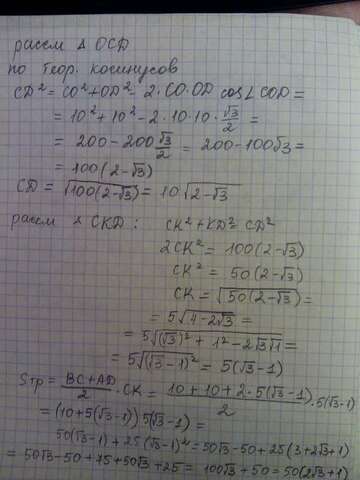 рассм Δ OCD
по теор. косинусов
CD² = CO² + OD² - 2·CO·OD cos∠COD =
= 10² + 10² - 2·10·10·√3/2 =
= 200 - 200√3/2 = 200 - 100√3 =
= 100(2-√3)
CD = √(100(2-√3)) = 10√(2-√3)
рассм Δ CKD: CK² + KD² = CD²
2CK² = 100(2-√3)
CK² = 50(2-√3)
CK = √(50(2-√3)) =
= 5√(4-2√3) =
= 5√((√3)² + 1² - 2√3·1) =
= 5√((√3-1)²) = 5(√3-1)
Sтр = (BC+AD)/2 · CK = (10+10+2·5(√3-1))/2 · 5(√3-1)
= (10+5(√3-1))5(√3-1) =
50(√3-1) + 25(√3-1)² = 50√3-50+25(3+2√3+1)
= 50√3-50+75+50√3+25 = 100√3+50 = 50(2√3+1)